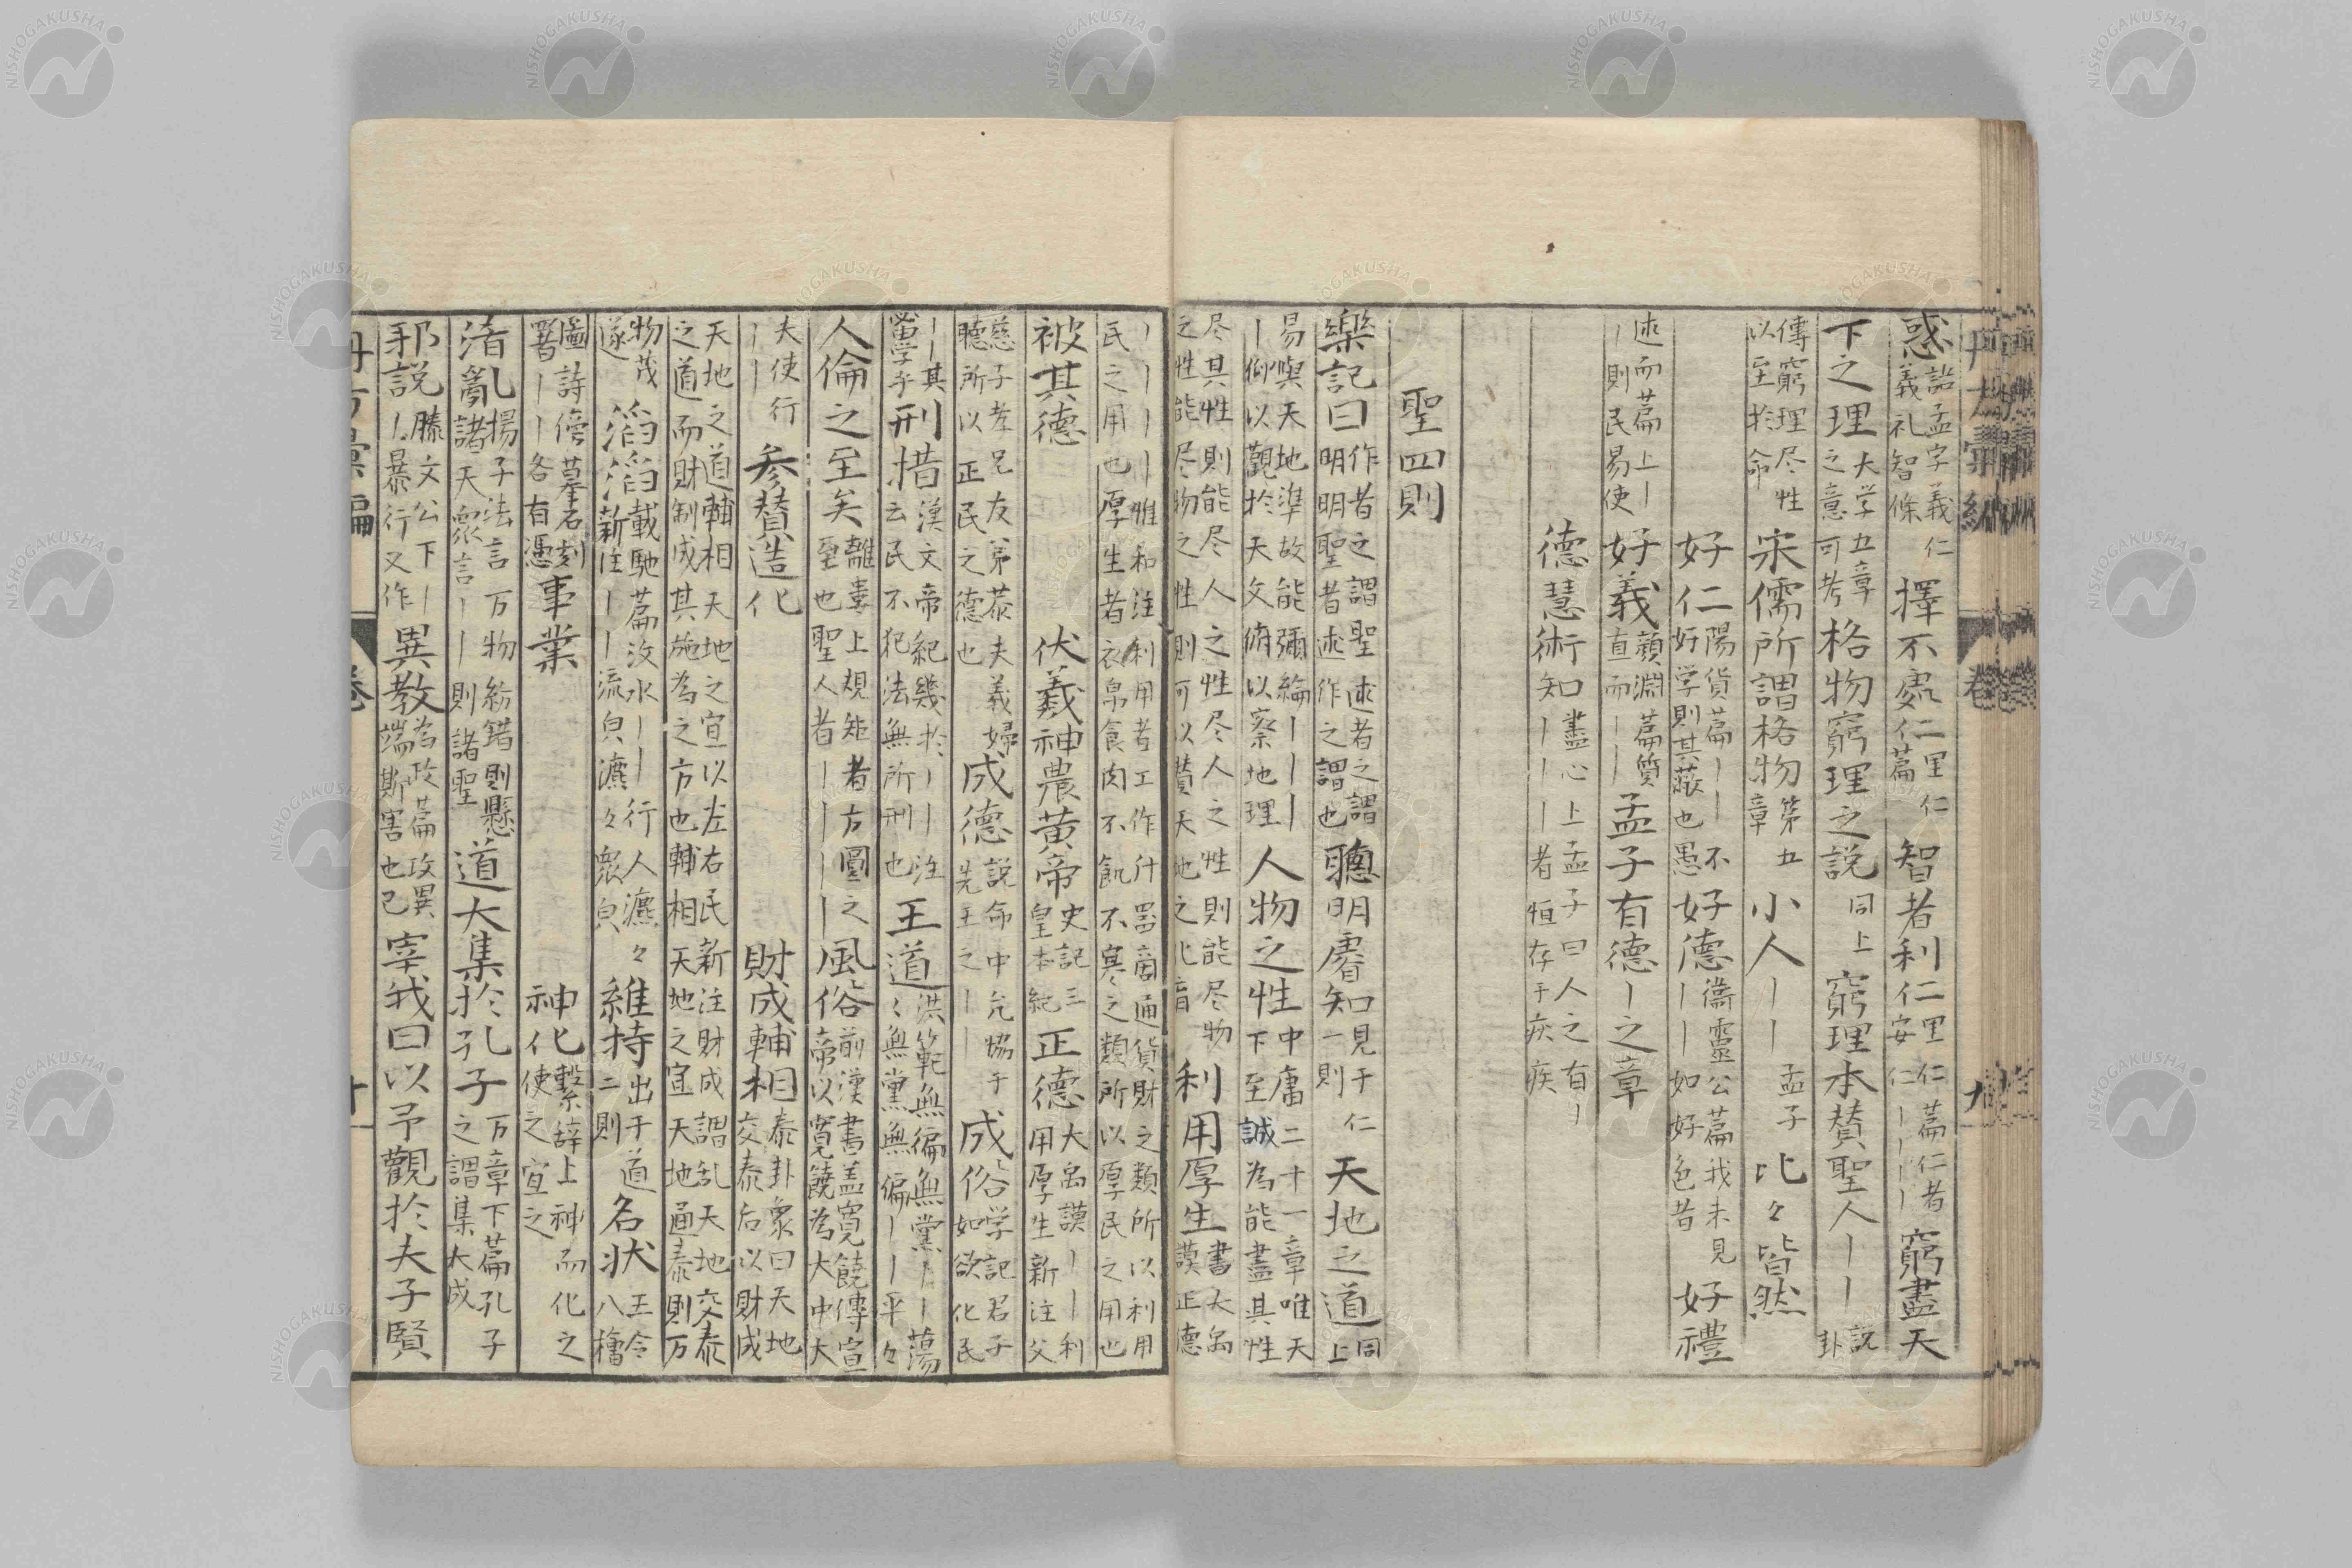 惑 詒孟字義仁義礼智條 擇不處仁 里仁篇 智者利仁 里仁篇仁者安仁丨丨丨 窮盡天
下之理 大学五章之意可考 格物窮理之説 同上 窮理本賛聖人丨丨 説卦
傳窮理尽性以至於命 宋儒所謂格物 第五章 小人丨丨 孟子 比々皆然
好仁 陽貨篇丨丨不好学則其蔽也愚 好德 衞靈公篇我未見丨丨如好色者 好禮
述而篇上丨丨則民易使 好義 顔淵篇質直而丨丨 孟子有德丨之章
德慧術知 盡心上孟子曰人之有丨丨丨丨者恒存于疢疾
聖四則
樂記曰 作者之謂聖述者之謂明明聖者述作之謂也 聰明睿知 見于仁一則 天地之道 同上
易與天地準故能彌綸丨丨丨丨仰以觀於天文俯以察地理 人物之性 中庸二十一章唯天下至誠為能盡其性
尽其性則能尽人之性尽人之性則能尽物之性能尽物之性則可以賛天地之化育 利用厚生 書大禹謨正德
丨丨丨丨惟和注利用者工作什器商通貨財之類所以利用民之用也厚生者衣帛食肉不飢不寒之類所以厚民之用也
被其德 伏羲神農黄帝 史記三皇本紀 正德 大禹謨丨丨利用厚生新注父
慈子孝兄友弟恭夫義婦聴所以正民之德也 成德 説命中允協于先王之丨丨 成俗 学記君子如欲化民
丨丨其必由学乎 刑措 漢文帝紀幾於丨丨注云民不犯法無所刑也 王道 洪範無偏無黨丨丨蕩々無黨無偏丨丨平々
人倫之至矣 離婁上規矩者方圓之至也聖人者丨丨丨丨 風俗 前漢書盖寛饒傳宣帝以寛饒為大中大
夫使行丨丨 参賛造化 財成輔相 泰卦象曰天地交泰后以財成
天地之道輔相天地之宜以左右民新注財成謂乱天地交泰之道而財制成其施為之方也輔相天地之宜天地通泰則万
物茂遂 滔滔 載馳篇汶水丨丨行人儦々新注丨丨流皃儦々衆皃 維持 出于道二則 名状 王令八檜
圖詩傍摹石刻署丨丨各有憑 事業 神化 繋辞上神而化之使之宜之
淆亂 揚子法言万物紛錯則懸諸天衆言丨丨則諸聖 道大集於孔子 万章下篇孔子之謂集大成
邪説 滕文公下丨丨暴行又作 異教 為政篇攻異端斯害也已 宰我曰以予觀於夫子賢